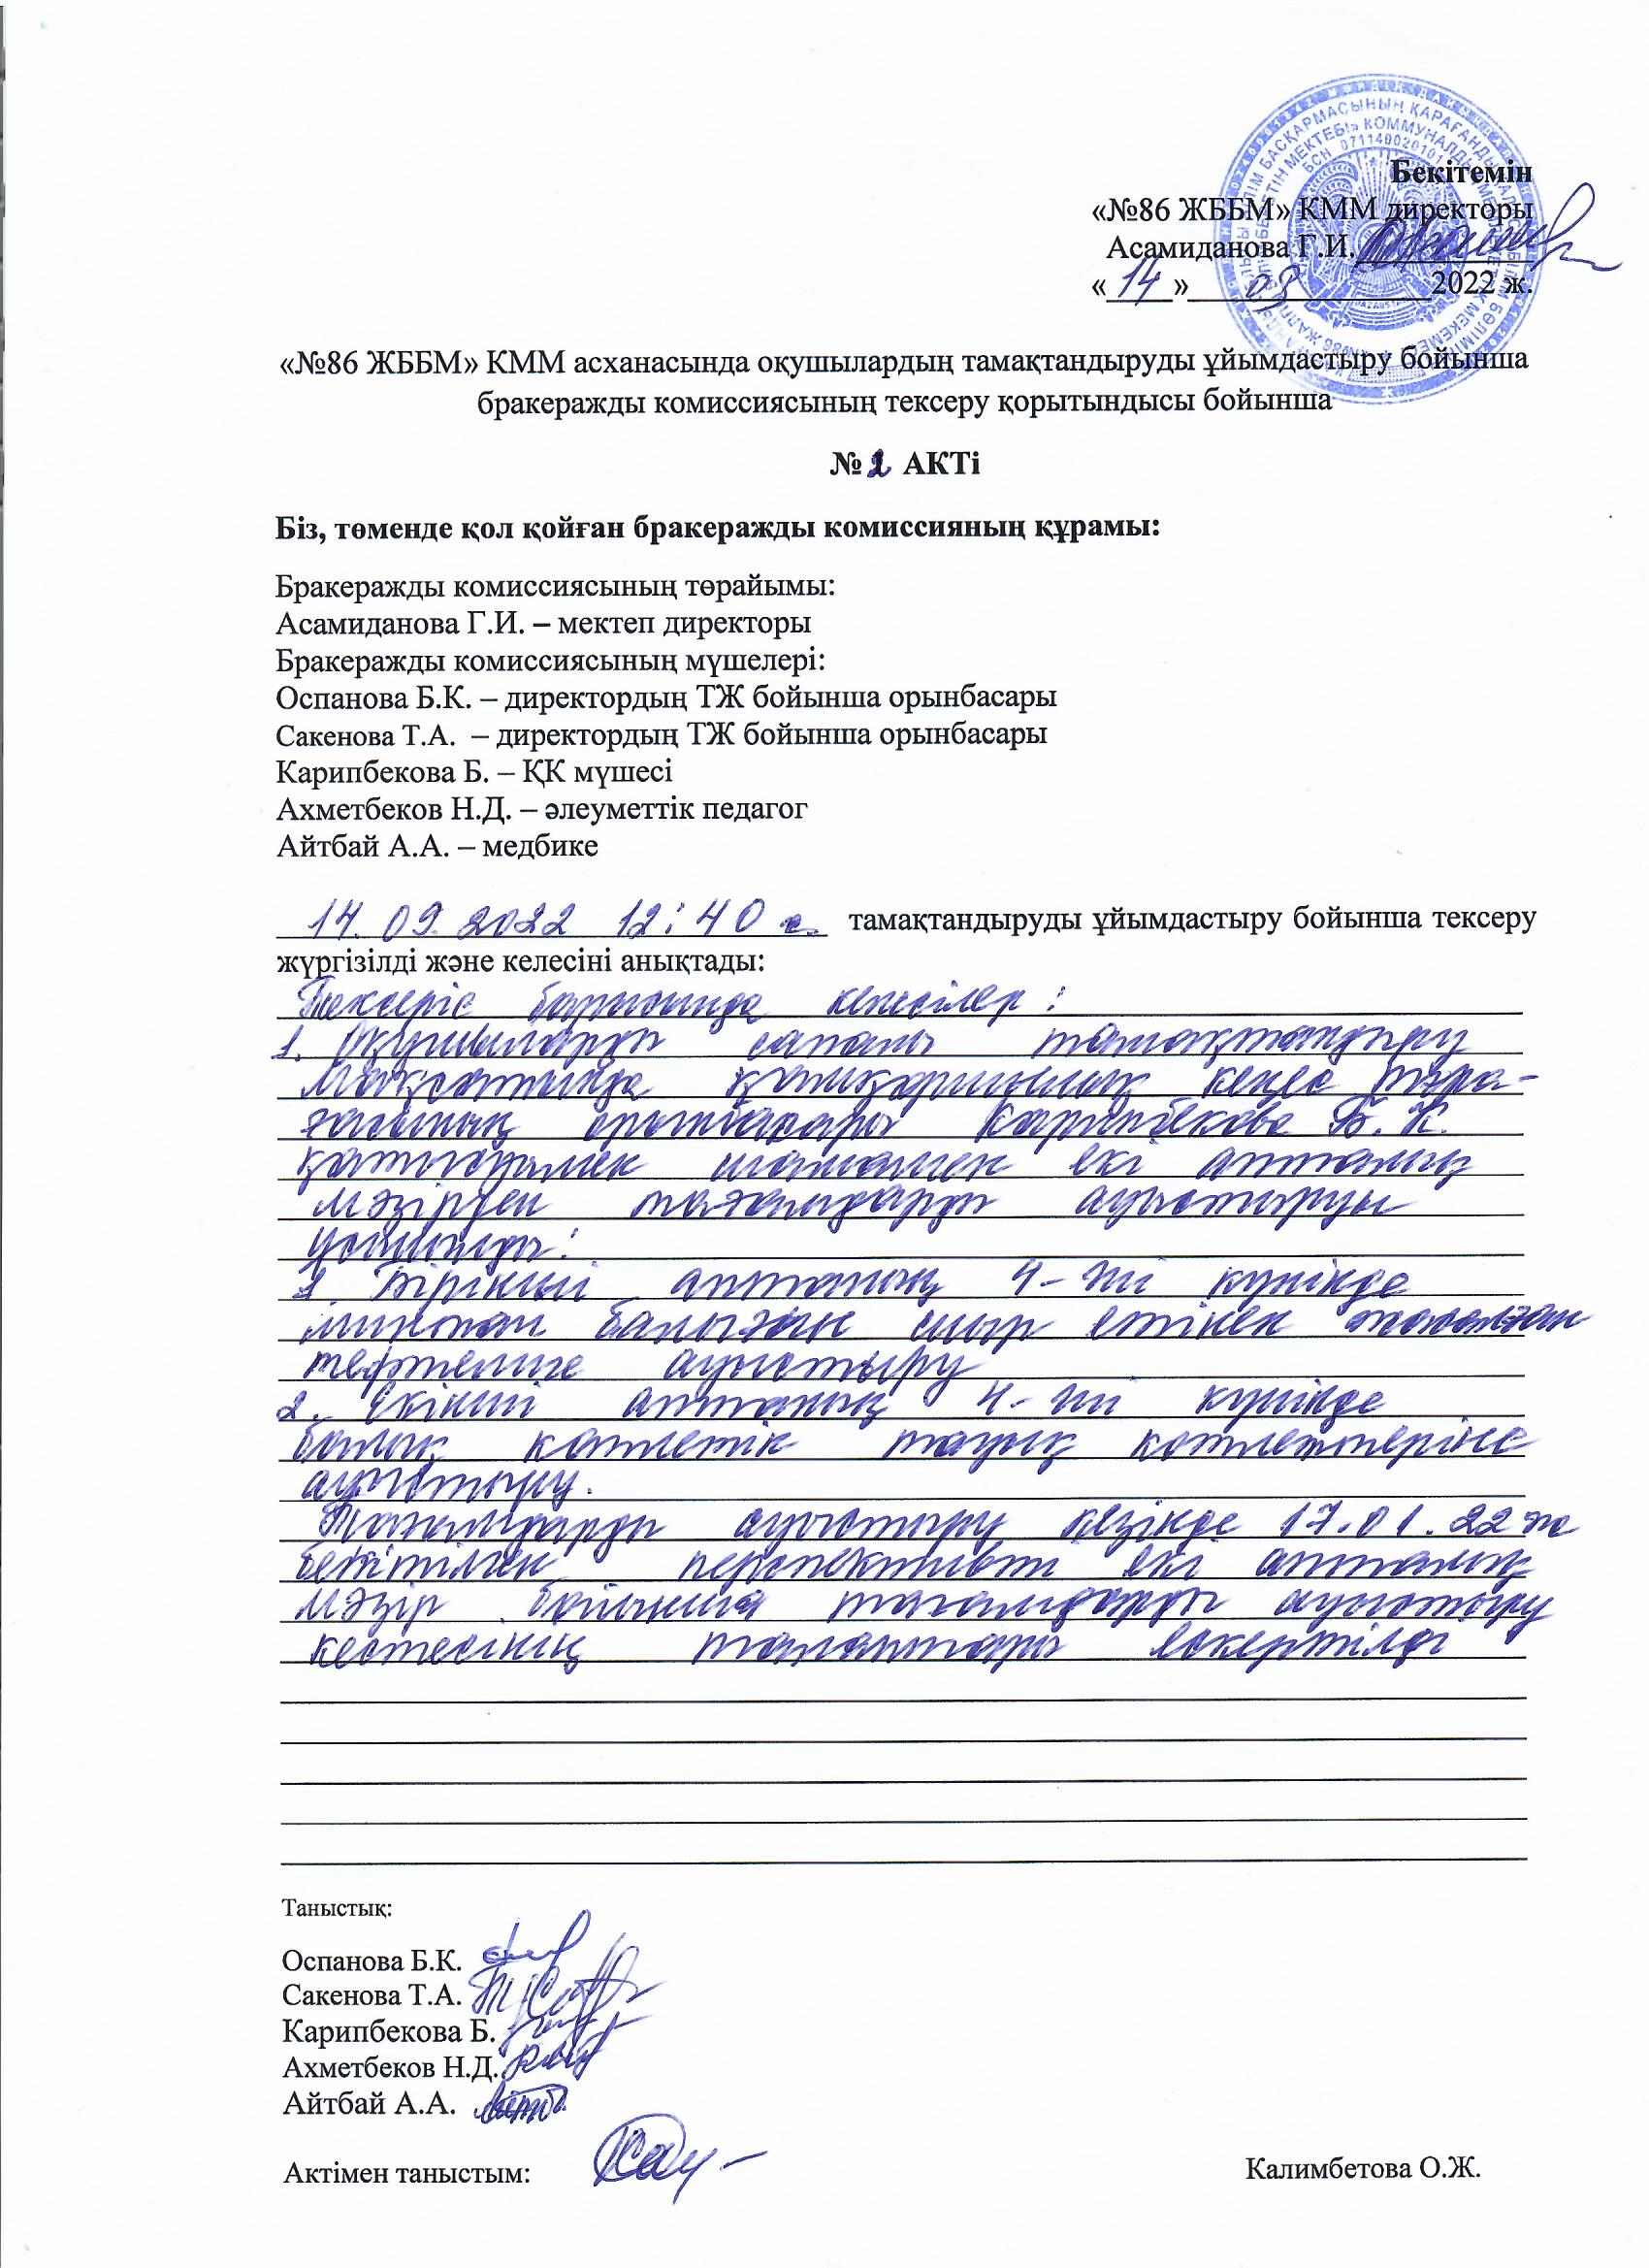 Бекітемін
«№86 ЖББМ» КММ директоры
Асамиданова Г.И.
«14» 09 2022 ж.
«№86 ЖББМ» КММ асханасында оқушылардың тамақтандыруды ұйымдастыру бойынша
бракеражды комиссиясының тексеру қорытындысы бойынша
№ 2 АКТі
Біз, төменде қол қойған бракеражды комиссияның құрамы:
Бракеражды комиссиясының төрайымы:
Асамиданова Г.И. – мектеп директоры
Бракеражды комиссиясының мүшелері:
Оспанова Б.К. – директордың ТЖ бойынша орынбасары
Сакенова Т.А. – директордың ТЖ бойынша орынбасары
Карипбекова Б. – ҚК мүшесі
Ахметбеков Н.Д. – әлеуметтік педагог
Айтбай А.А. – медбике
14.09.2022 12:40 тамақтандыруды ұйымдастыру бойынша тексеру
жүргізілді және келесіні анықтады:
Тексеріс барысында келесілер:
1. Оқушыларды сапалы тамақтандыру
мақсатында қамқоршылық кеңес төра-
ғасының орынбасары Карипбекова Б.К.
қатысуымен шамамен екі апталық
мәзірден тағамдарды ауыстыруды
ұсынды:
1. Бірінші аптаның 4-ші күнінде
минтай балығын сиыр етінен жасалған
тефтелиге ауыстыру
2. Екінші аптаның 4-ші күнінде
балық котлетін тауық котлеттеріне
ауыстыру.
Тағамдарды ауыстыру кезінде 17.01.22 ж
бекітілген перспективті екі апталық
мәзір бойынша тағамдарды ауыстыру
кестесінің талаптары ескертілді
Таныстық:
Оспанова Б.К.
Сакенова Т.А.
Карипбекова Б.
Ахметбеков Н.Д.
Айтбай А.А.
Актімен таныстым: Калимбетова О.Ж.